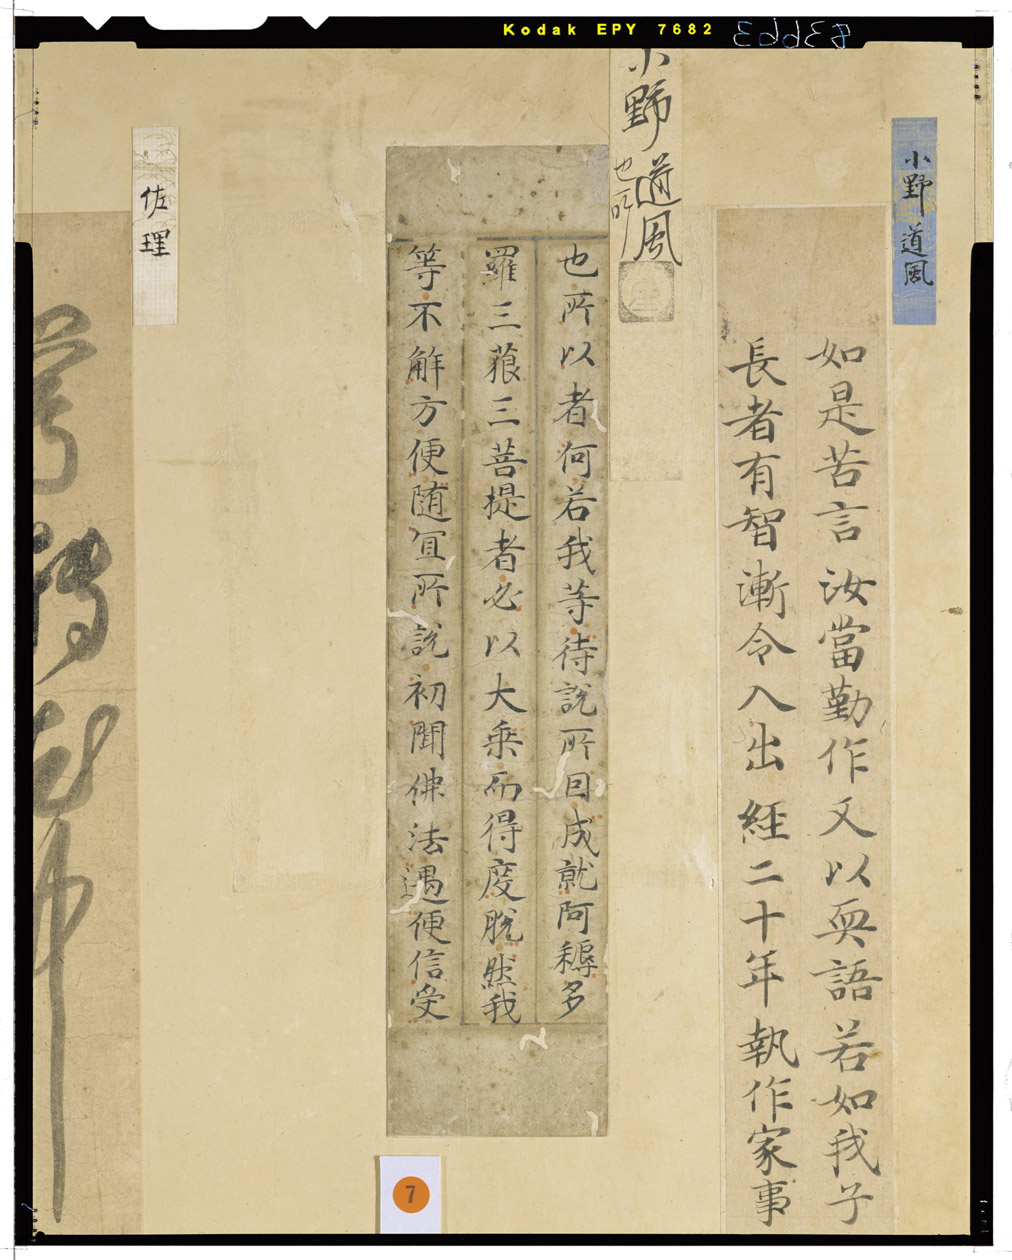 Kodak EPY 7682
83663
小野道風
如是苦言汝當勤作又以耎語若如我子
長者有智漸令入出經二十年執作家事
小野道風
也所
也所以者何若我等待說所因成就阿耨多
羅三藐三菩提者必以大乘而得度脫然我
等不解方便随宜所說初聞佛法遇便信受
佐理
7